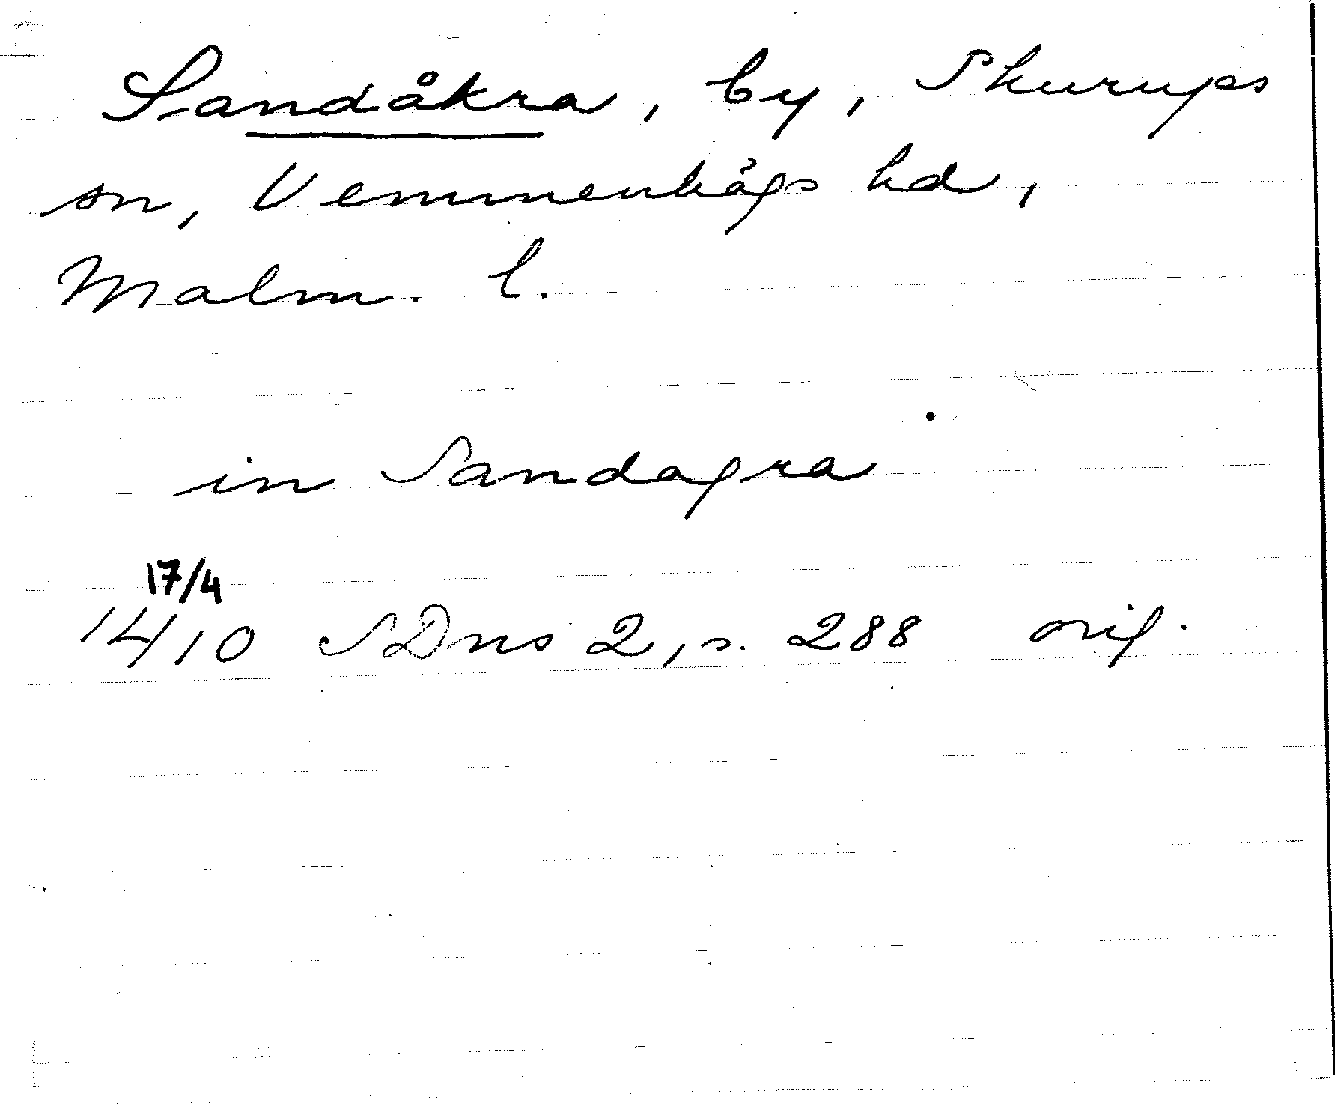 Sandåkra, by, Skurups
sn, Vemmenhögs hd,
Malm. l.
in Sandagra
17/4
1410 SDns 2, s. 288 orig.